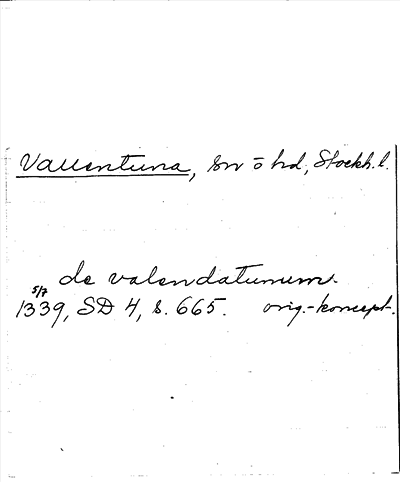 Vallentuna, sn o hd, Stockh. l.
de valendatumum.
5/7
1339, SD 4, s. 665. orig.-koncept.